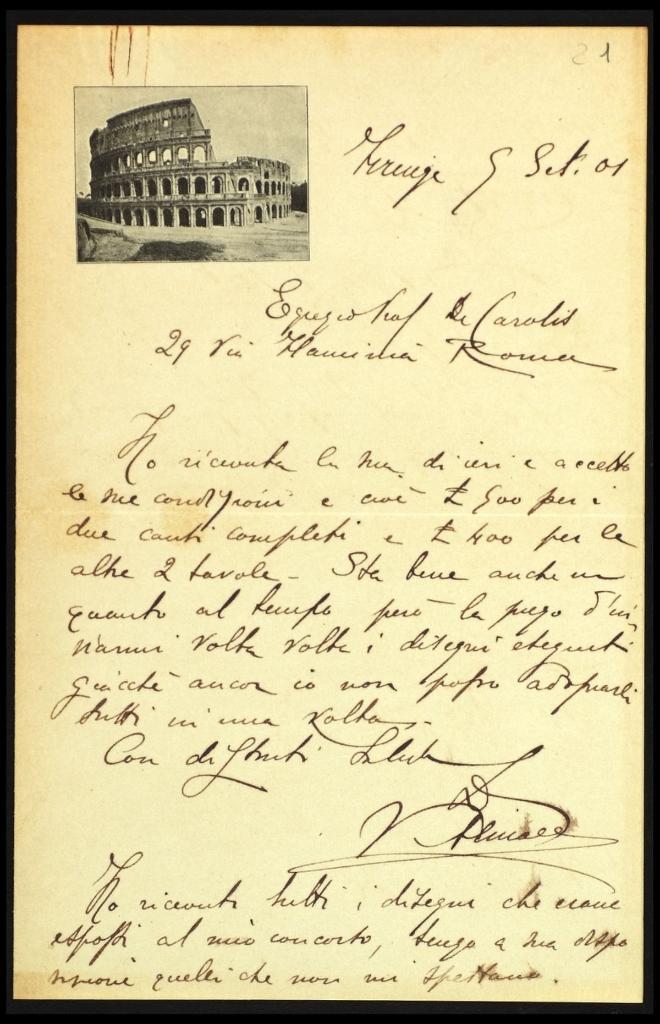 21
Firenze 5 Set. 01
Egregio Prof De Carolis
29 Via Flaminia Roma
Ho ricevuta la sua di ieri e accetto
le sue condizioni e cioè £ 500 per i
due canti completi e £ 400 per le
altre 2 tavole - Sta bene anche in
quanto al tempo però la prego d'in
viarmi volta volta i disegni eseguiti
giacchè ancor io non posso adoprarli
tutti in una volta.
Con distinti saluti
V Alinari
Ho ricevuti tutti i disegni che erano
esposti al mio concorso, tengo a sua dispo
sizione quelli che non mi spettano.